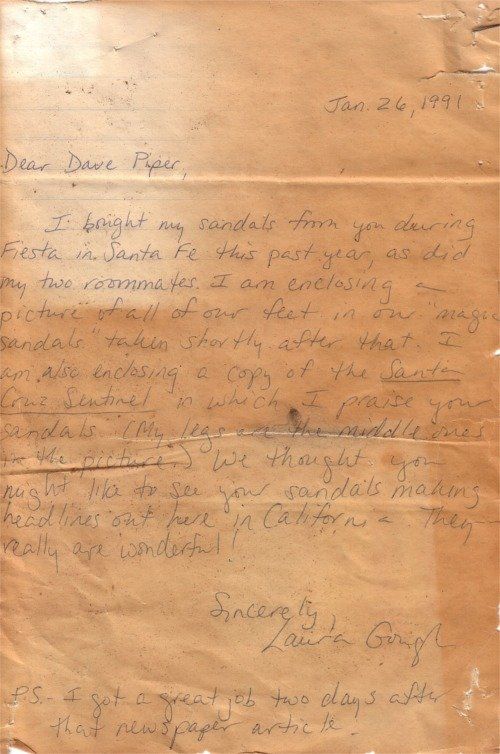 Jan. 26, 1991
Dear Dave Piper,
I bought my sandals from you during
Fiesta in Santa Fe this past year, as did
my two roommates. I am enclosing a
picture of all of our feet in our "magic
sandals" taken shortly after that. I
am also enclosing a copy of the Santa
Cruz Sentinel in which I praise your
sandals. (My legs are the middle ones
in the picture.) We thought you
might like to see your sandals making
headlines out here in California. They
really are wonderful!
Sincerely,
Laura Gough
P.S. - I got a great job two days after
that newspaper article.